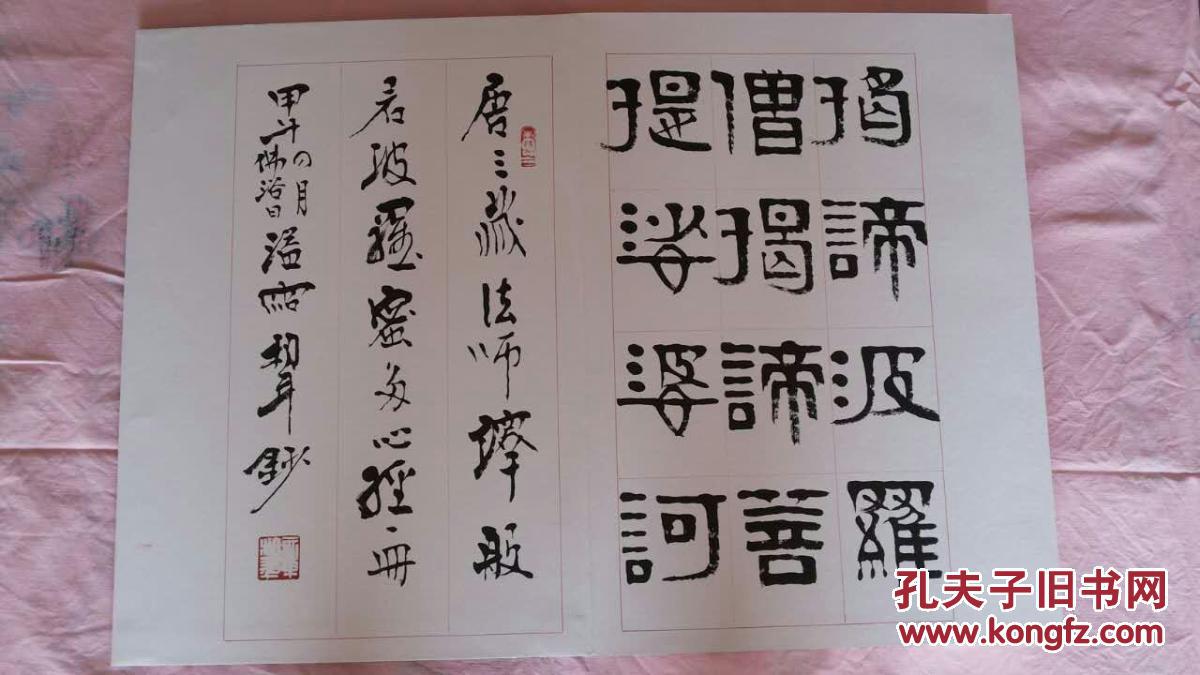 揭諦波羅
僧揭諦菩
提娑婆訶
唐三藏法師譯般
若波羅蜜多心經一冊
甲午四月佛浴日溢
鈔
孔夫子旧书网
www.kongfz.com